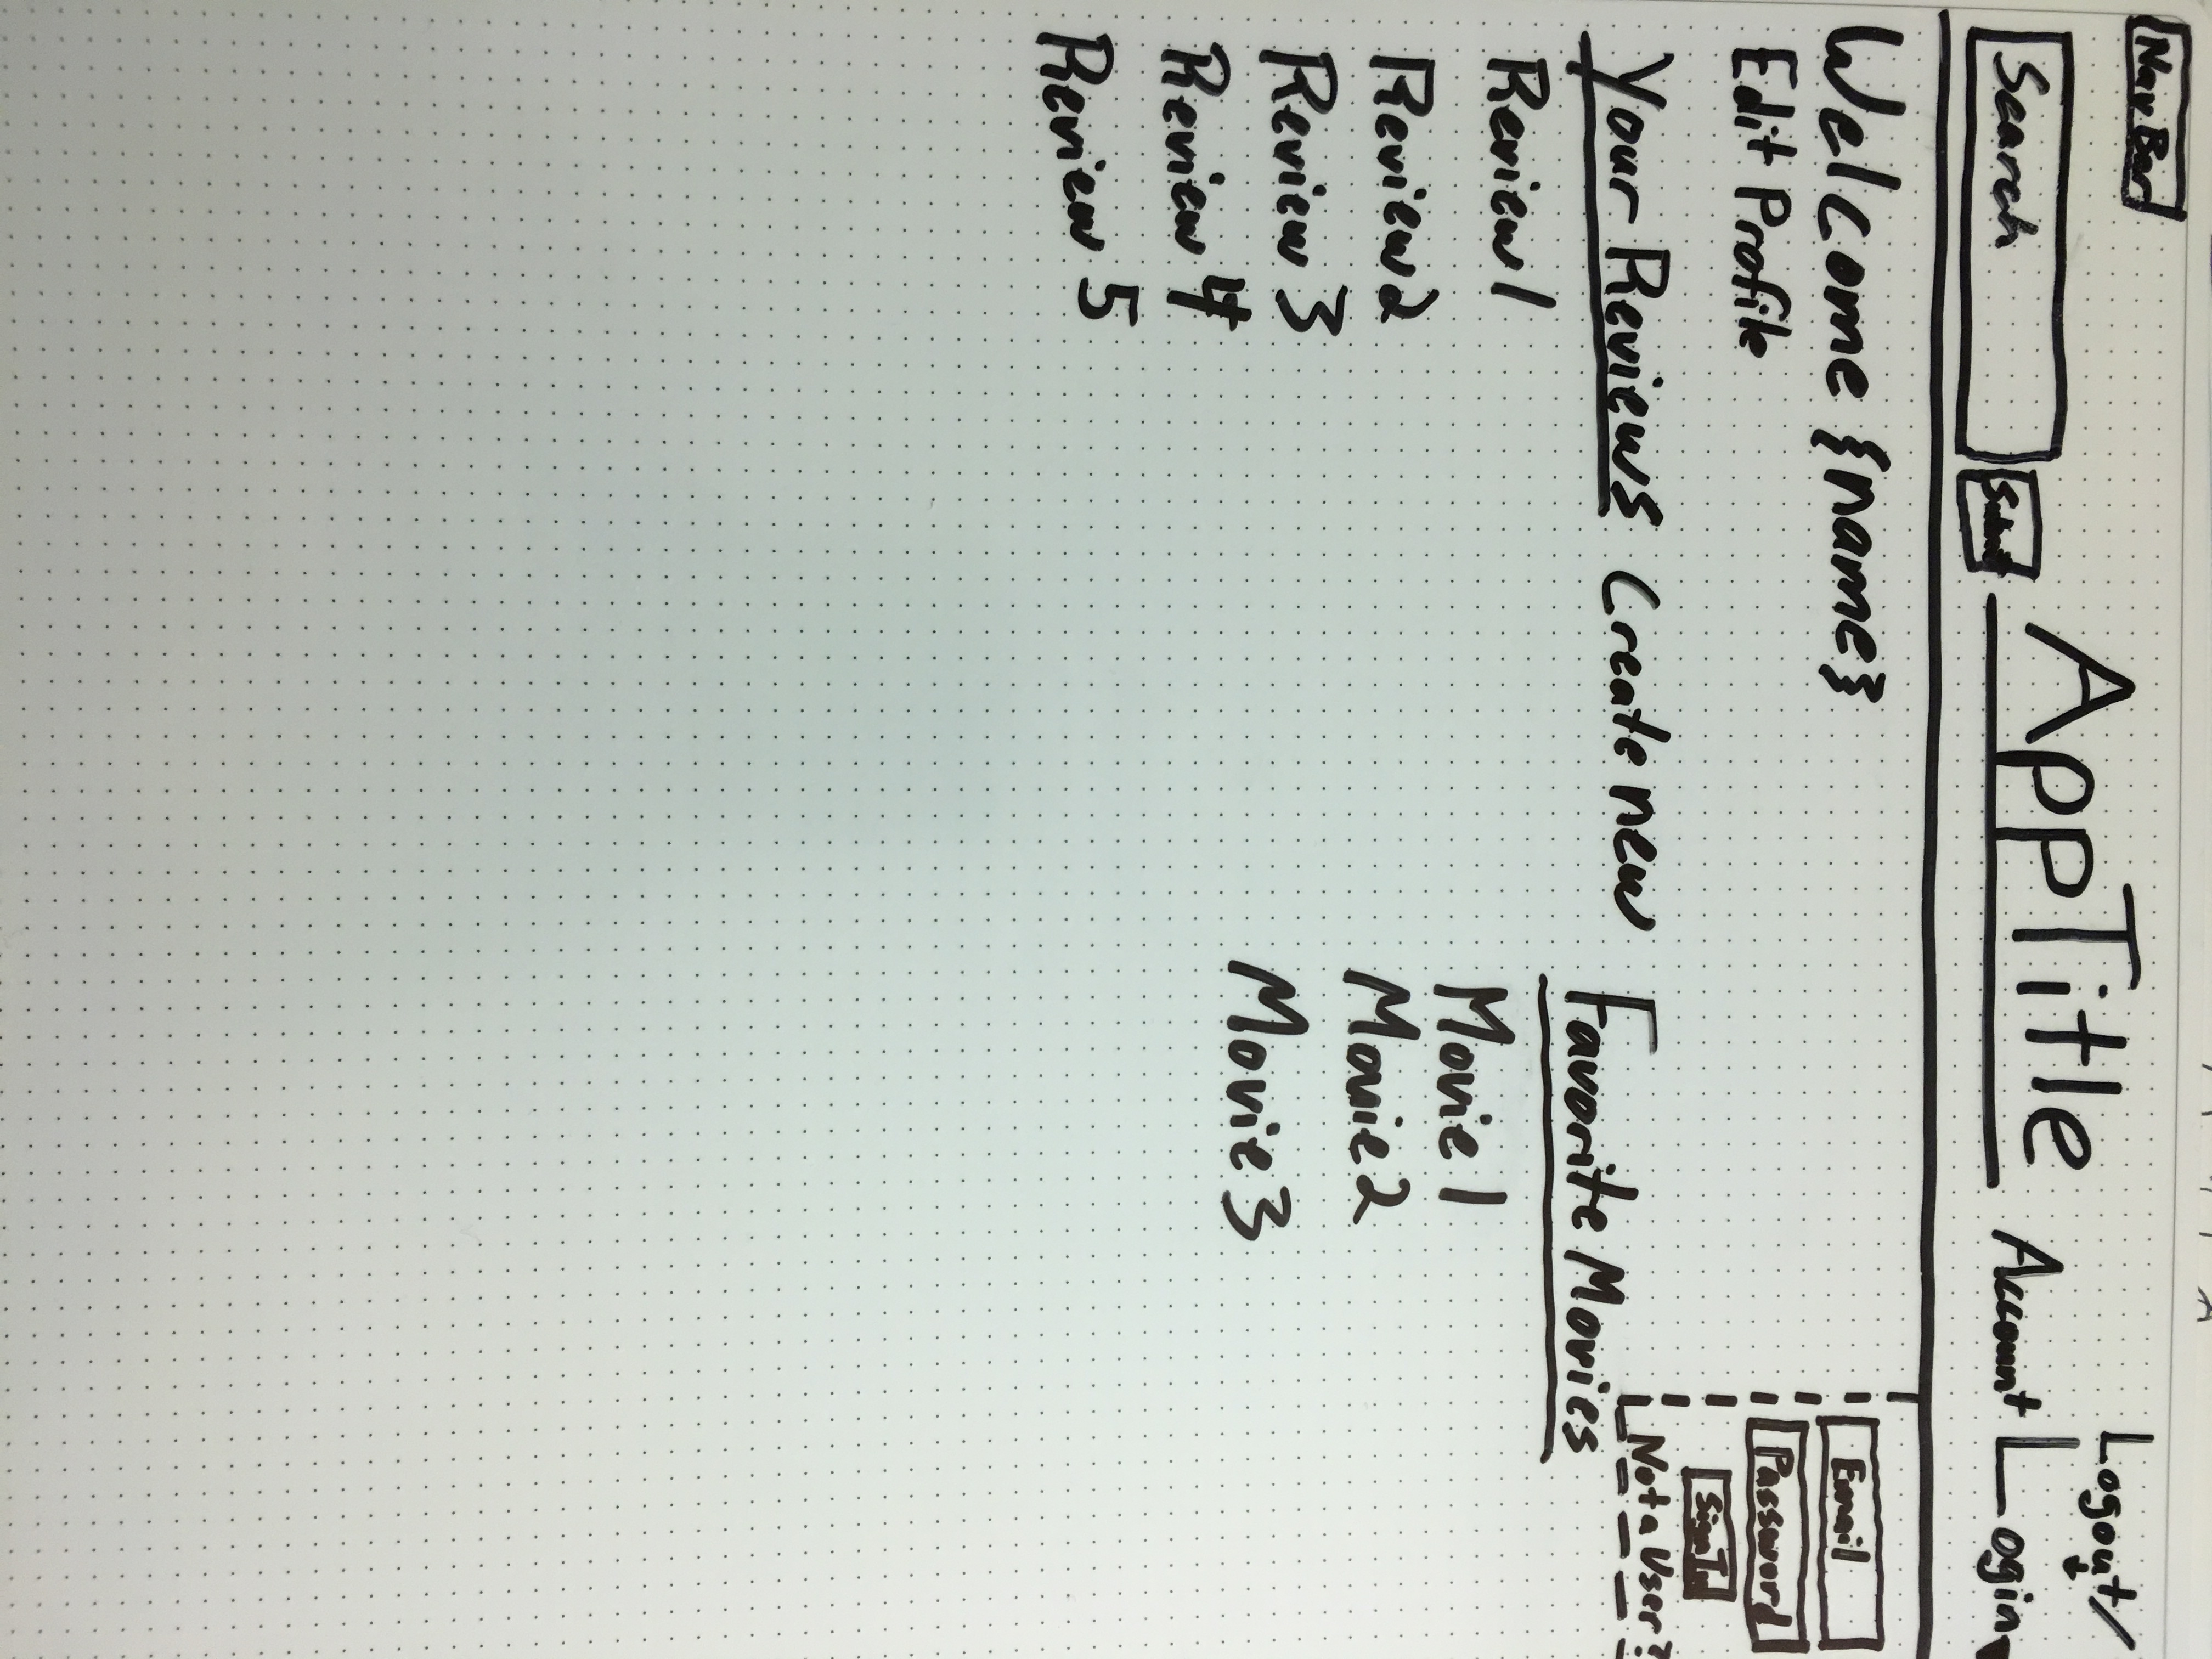 Nav Bar
Search
Submit
AppTitle
Account
Logout/
Login
Email
Password
Sign In
Not a User?
Welcome {name}
Edit Profile
Your Reviews Create new
Review 1
Review 2
Review 3
Review 4
Review 5
Favorite Movies
Movie 1
Movie 2
Movie 3